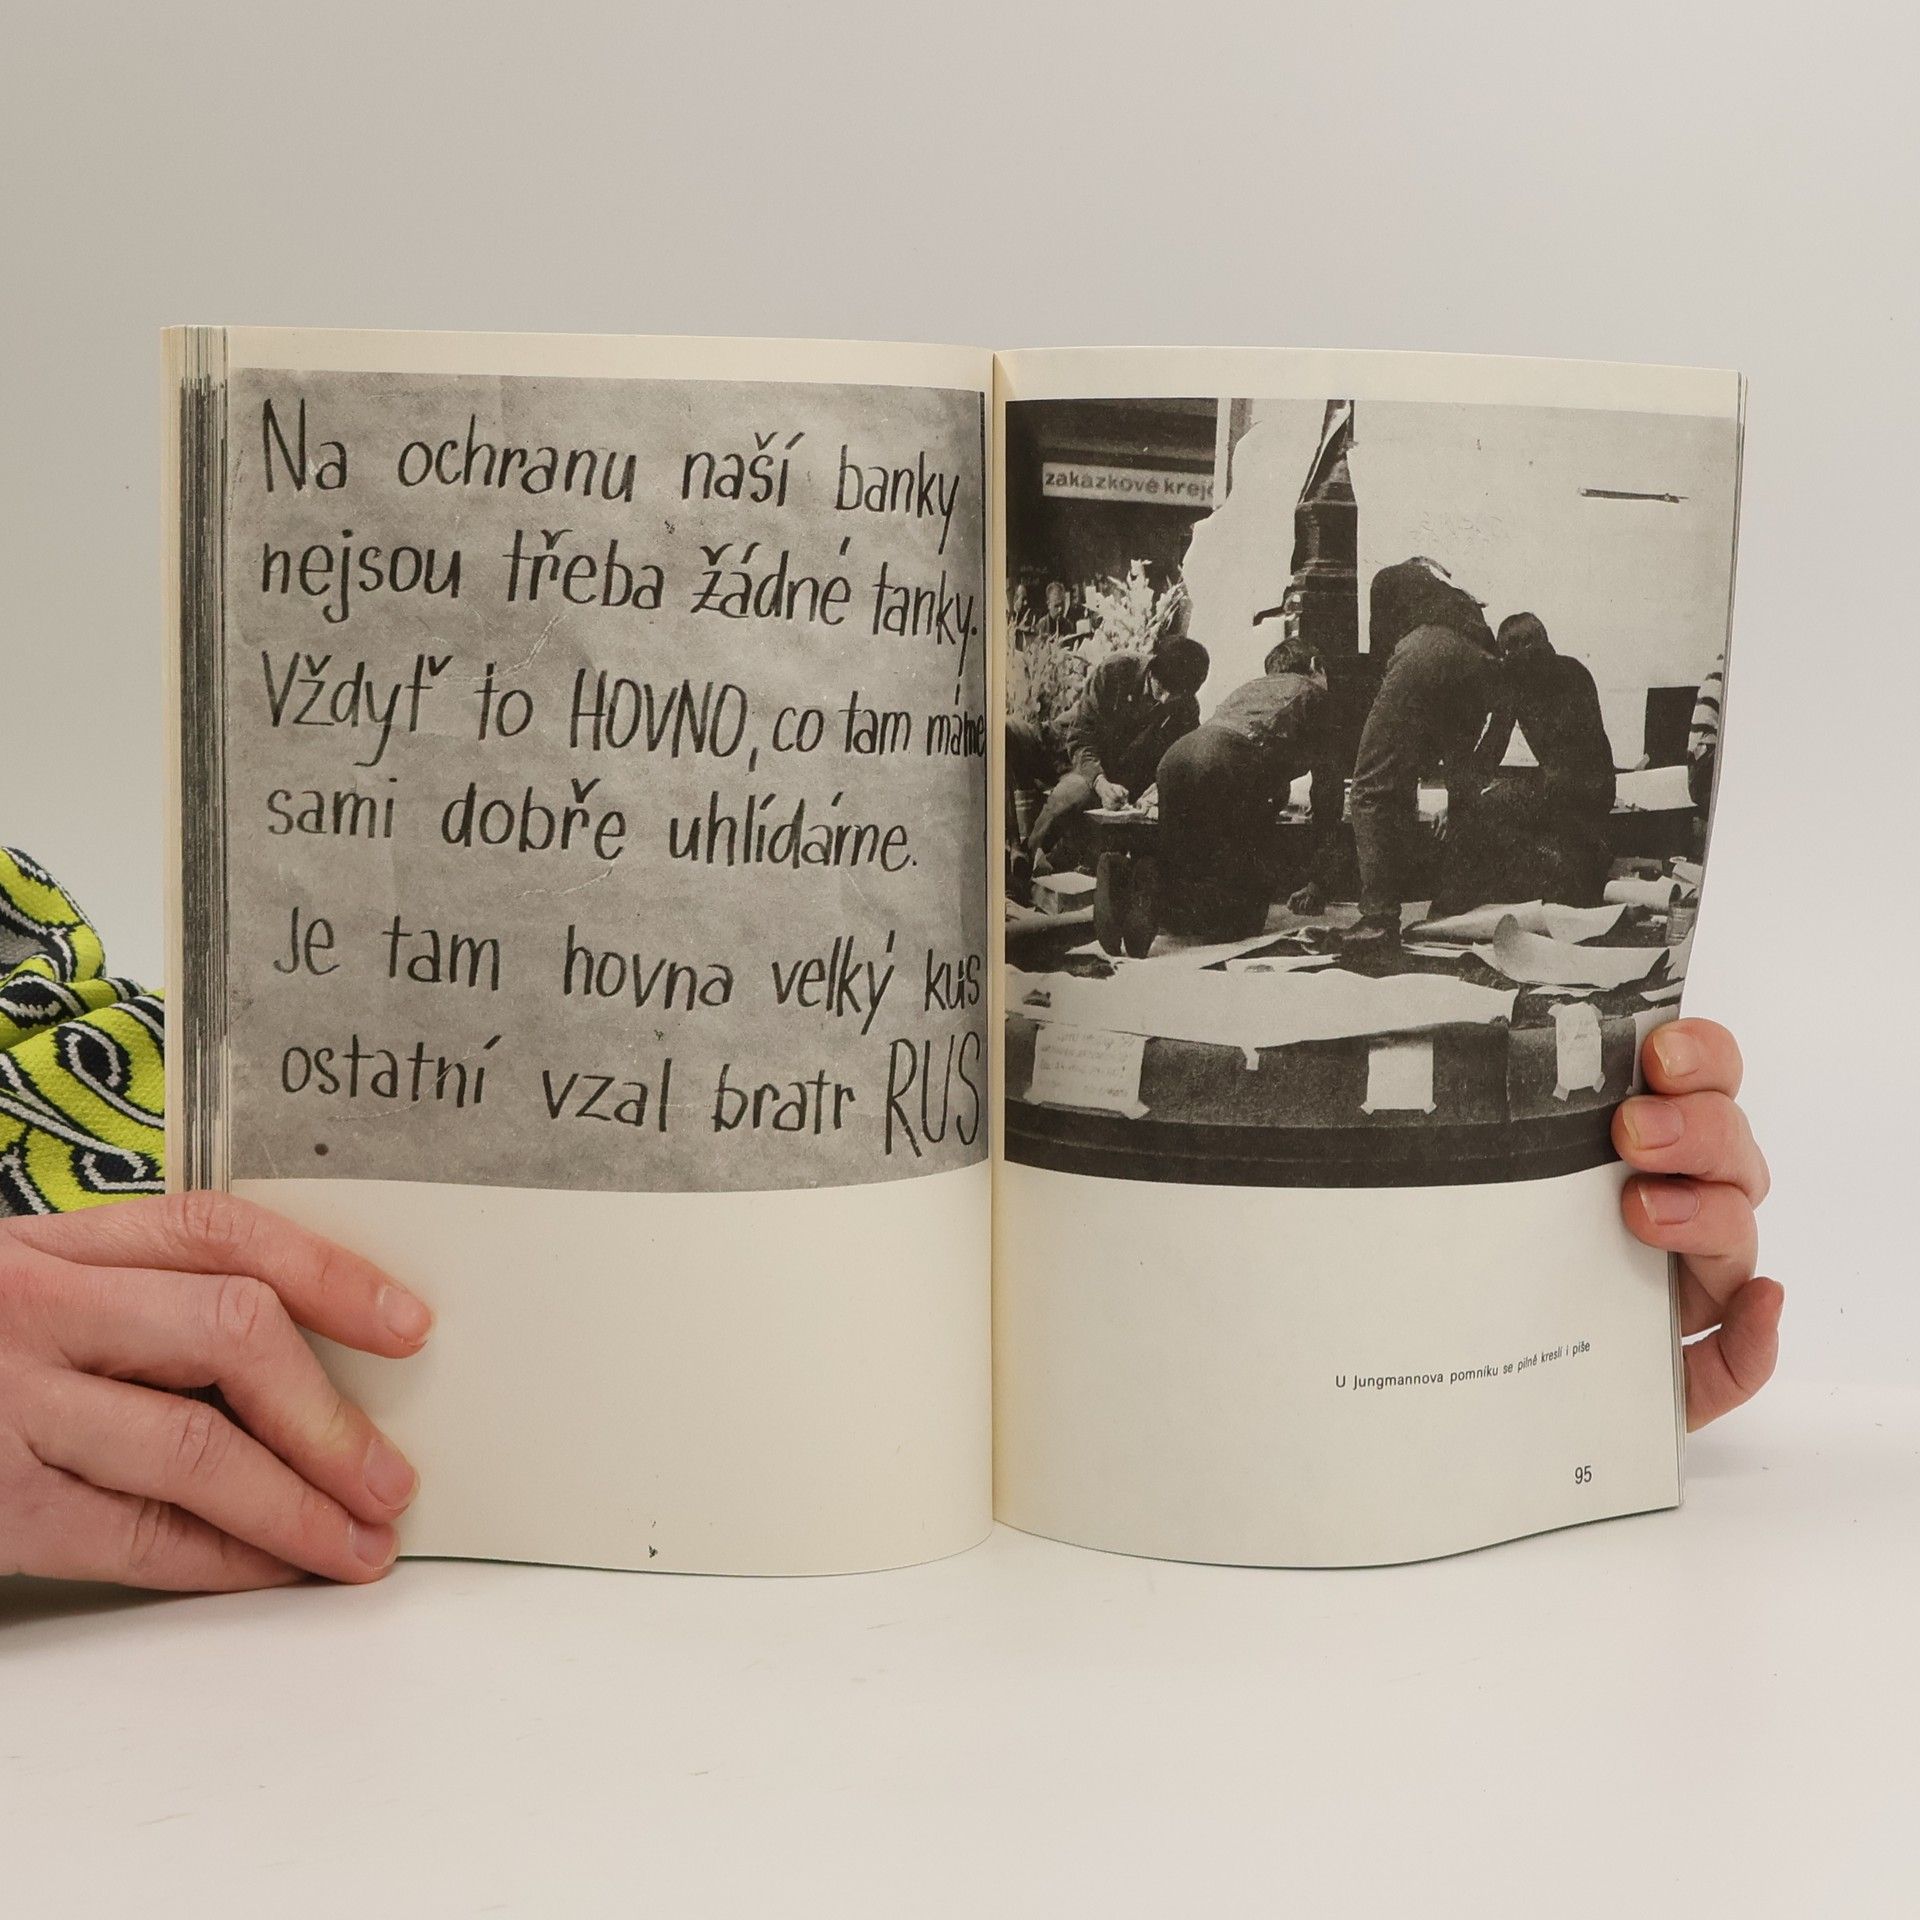 Na ochranu naší banky
nejsou třeba žádné tanky.
Vždyť to HOVNO, co tam máme
sami dobře uhlídáme.
Je tam hovna velký kus
ostatní vzal bratr RUS
zakázkové krejč
U Jungmannova pomníku se pilně kreslí i píše
95